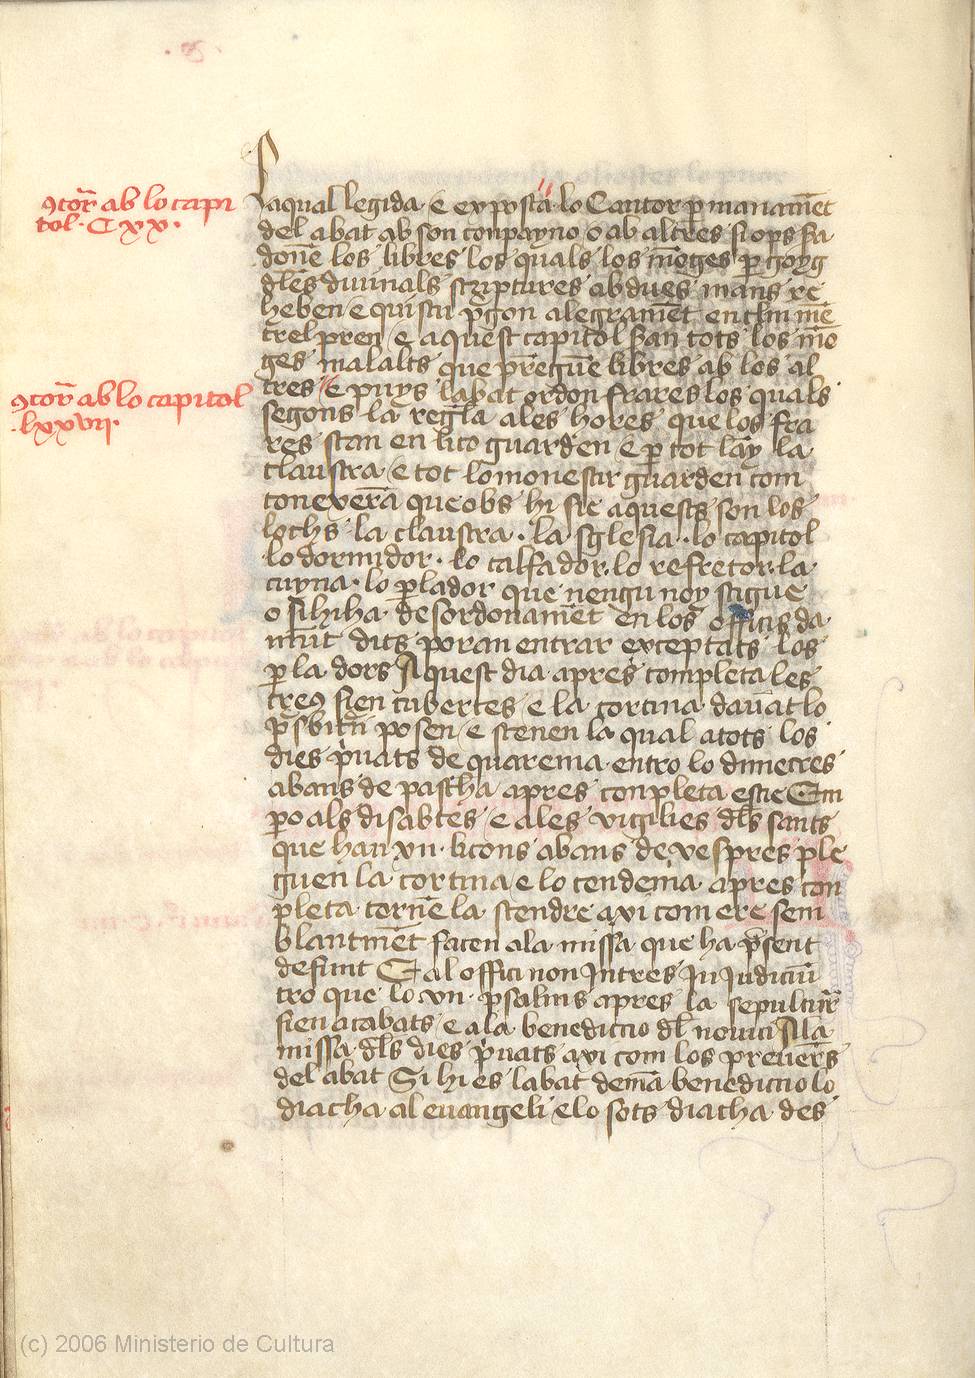 ꝯcor̄ ab lo capi
tol · C xx ·
ꝯcor̄ ab lo capitol
· lxxvii ·
Laqual legida · e exposta · lo Cantor ꝑ manamēt
del abat ab son conpayno o ab altres si ops sa
donē los libres los quals los mōges ꝑ goyg
dl̄es diuinals scriptures ab dues mans re
heben e qui scu ꝑgon alegramēt en tlm mē
trel pren e aquest capitol sian tots los mō
ges malalts que pregūe libres ab los al
tres E puys labat ordon frares los quals
segons la regla ales hores que los fra
res stan en lico guarden e ꝑ tot lay la
claustra e tot lo monestir guarden com
conexerā que obs hi sie aquests son los
lochs la claustra · la sglesia · lo capitol
lo dormidor · lo calfador · lo refretor · la
cuyna · lo ꝑlador que nengu noy stigue
o si hi ha desordonamēt en los officis da
munt dits poran entrar exceptats los
ꝑla dors Aquest dia apres completa les
creus sien cubertes e la cortina dauāt lo
ꝑsbiteri posen e stenen la qual a tots los
dies pͥuats de quarema entro lo dimecres
abans de pascha apres conpleta estie Em
ꝑo als disabtes e ales vigilies dl̄s sants
que han xii · licons abans de vespres ple
guen la cortina e lo tendemā apres con
pleta tornē la stendre axi com ere sem
blantmēt facen ala missa que ha p̄sent
defunt E al offici non Intres In Iudiciū
tro que lo vii · psalms apres la sepultur̄
sien acabats e a la benediccio dl̄ nouici A la
missa dl̄s dies pͥuats axi com los preuers
del abat Si hi es labat demā benediccio lo
diacha al euangeli e lo sots diacha des
(c) 2006 Ministerio de Cultura